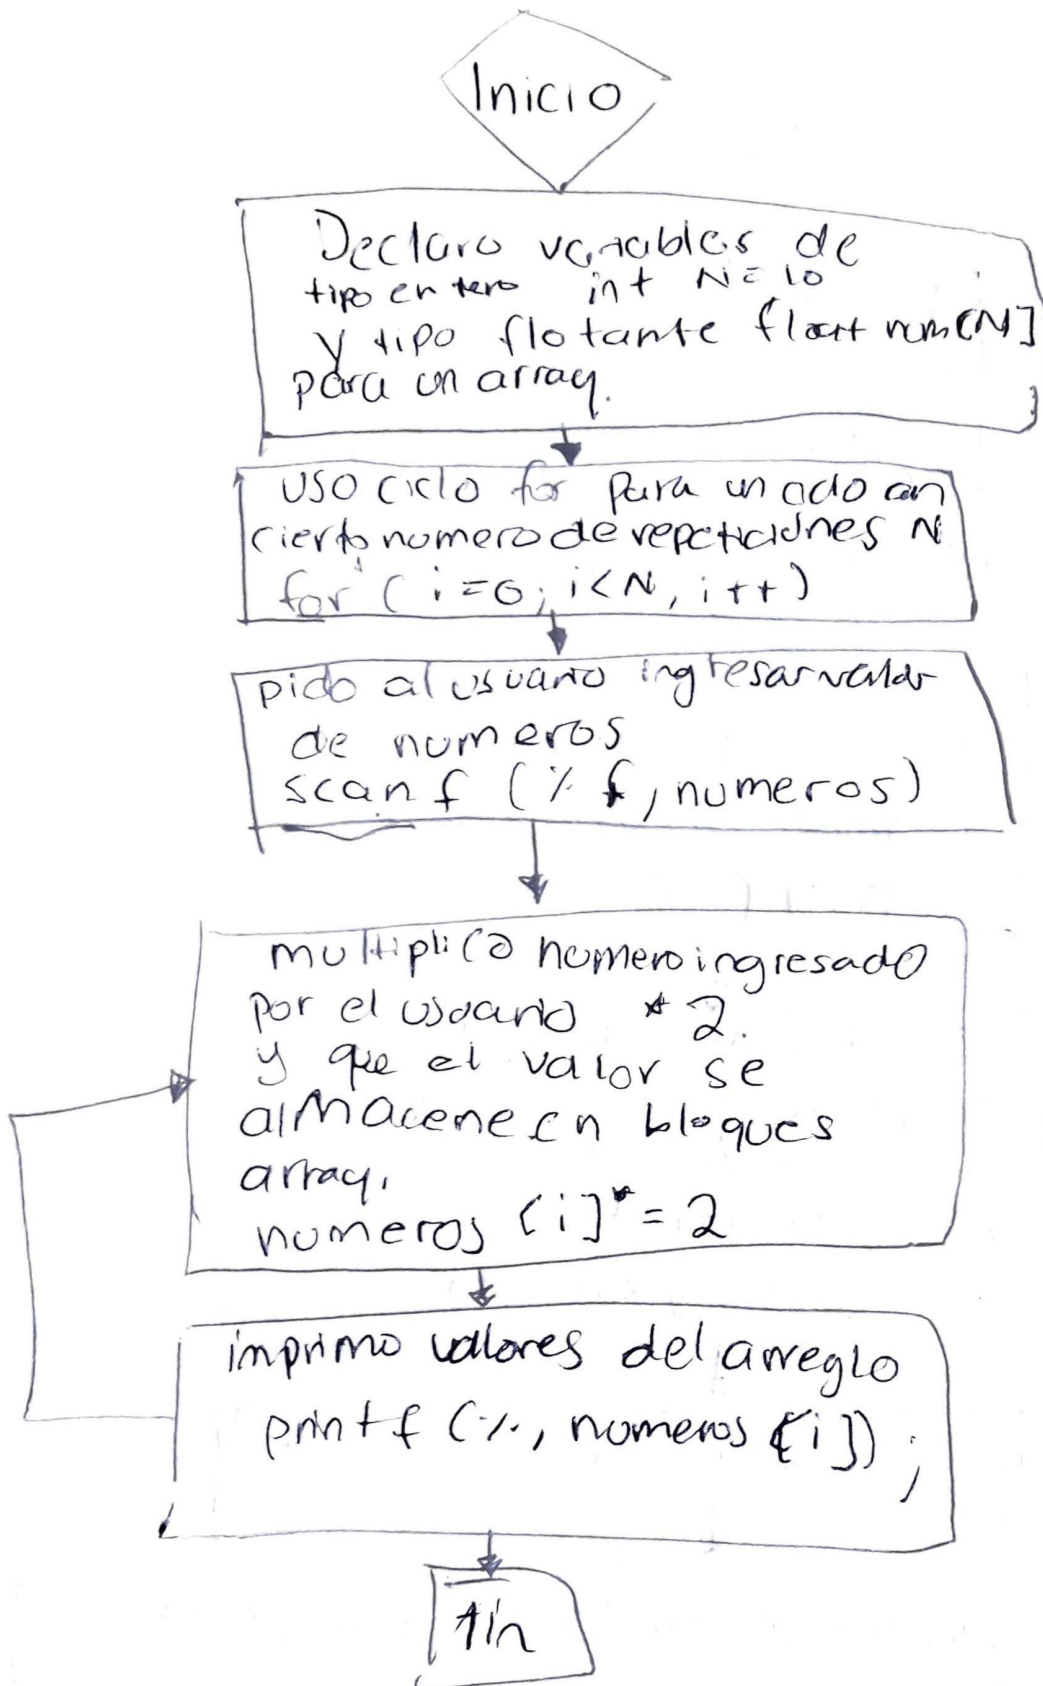 Inicio
Declaro variables de
tipo entero int N=10
y tipo flotante float num[N]
para un array.
uso ciclo for para un ciclo con
cierto numero de repeticiones N
for (i=0; i<N, i++)
pido al usuario ingresar valor
de numeros
scanf (% f, numeros)
multiplico numero ingresado
por el usuario * 2.
y que el valor se
almacene en bloques
array.
numeros [i] *= 2
imprimo valores del arreglo
printf (%, numeros [i]);
fin